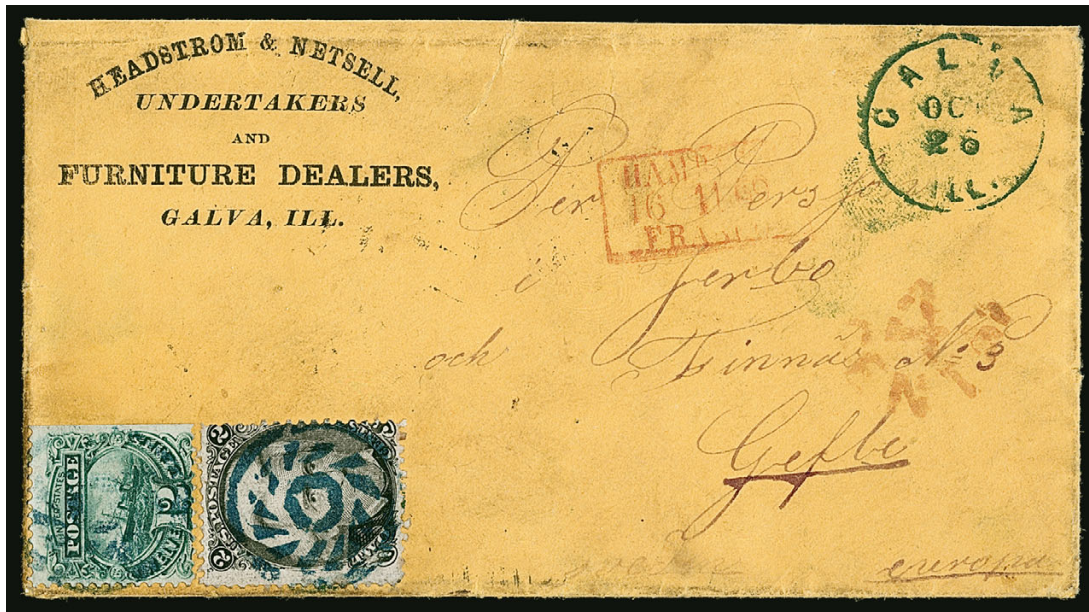 HEADSTROM & NETSELL,
UNDERTAKERS
AND
FURNITURE DEALERS,
GALVA, ILL.
GALVA
OC
26
ILL.
HAMB
16 11 69
FRANCO
Per Persson
i Jerbo
och Finnäs No 3
Gefle
europa
POSTAGE
POSTAGE